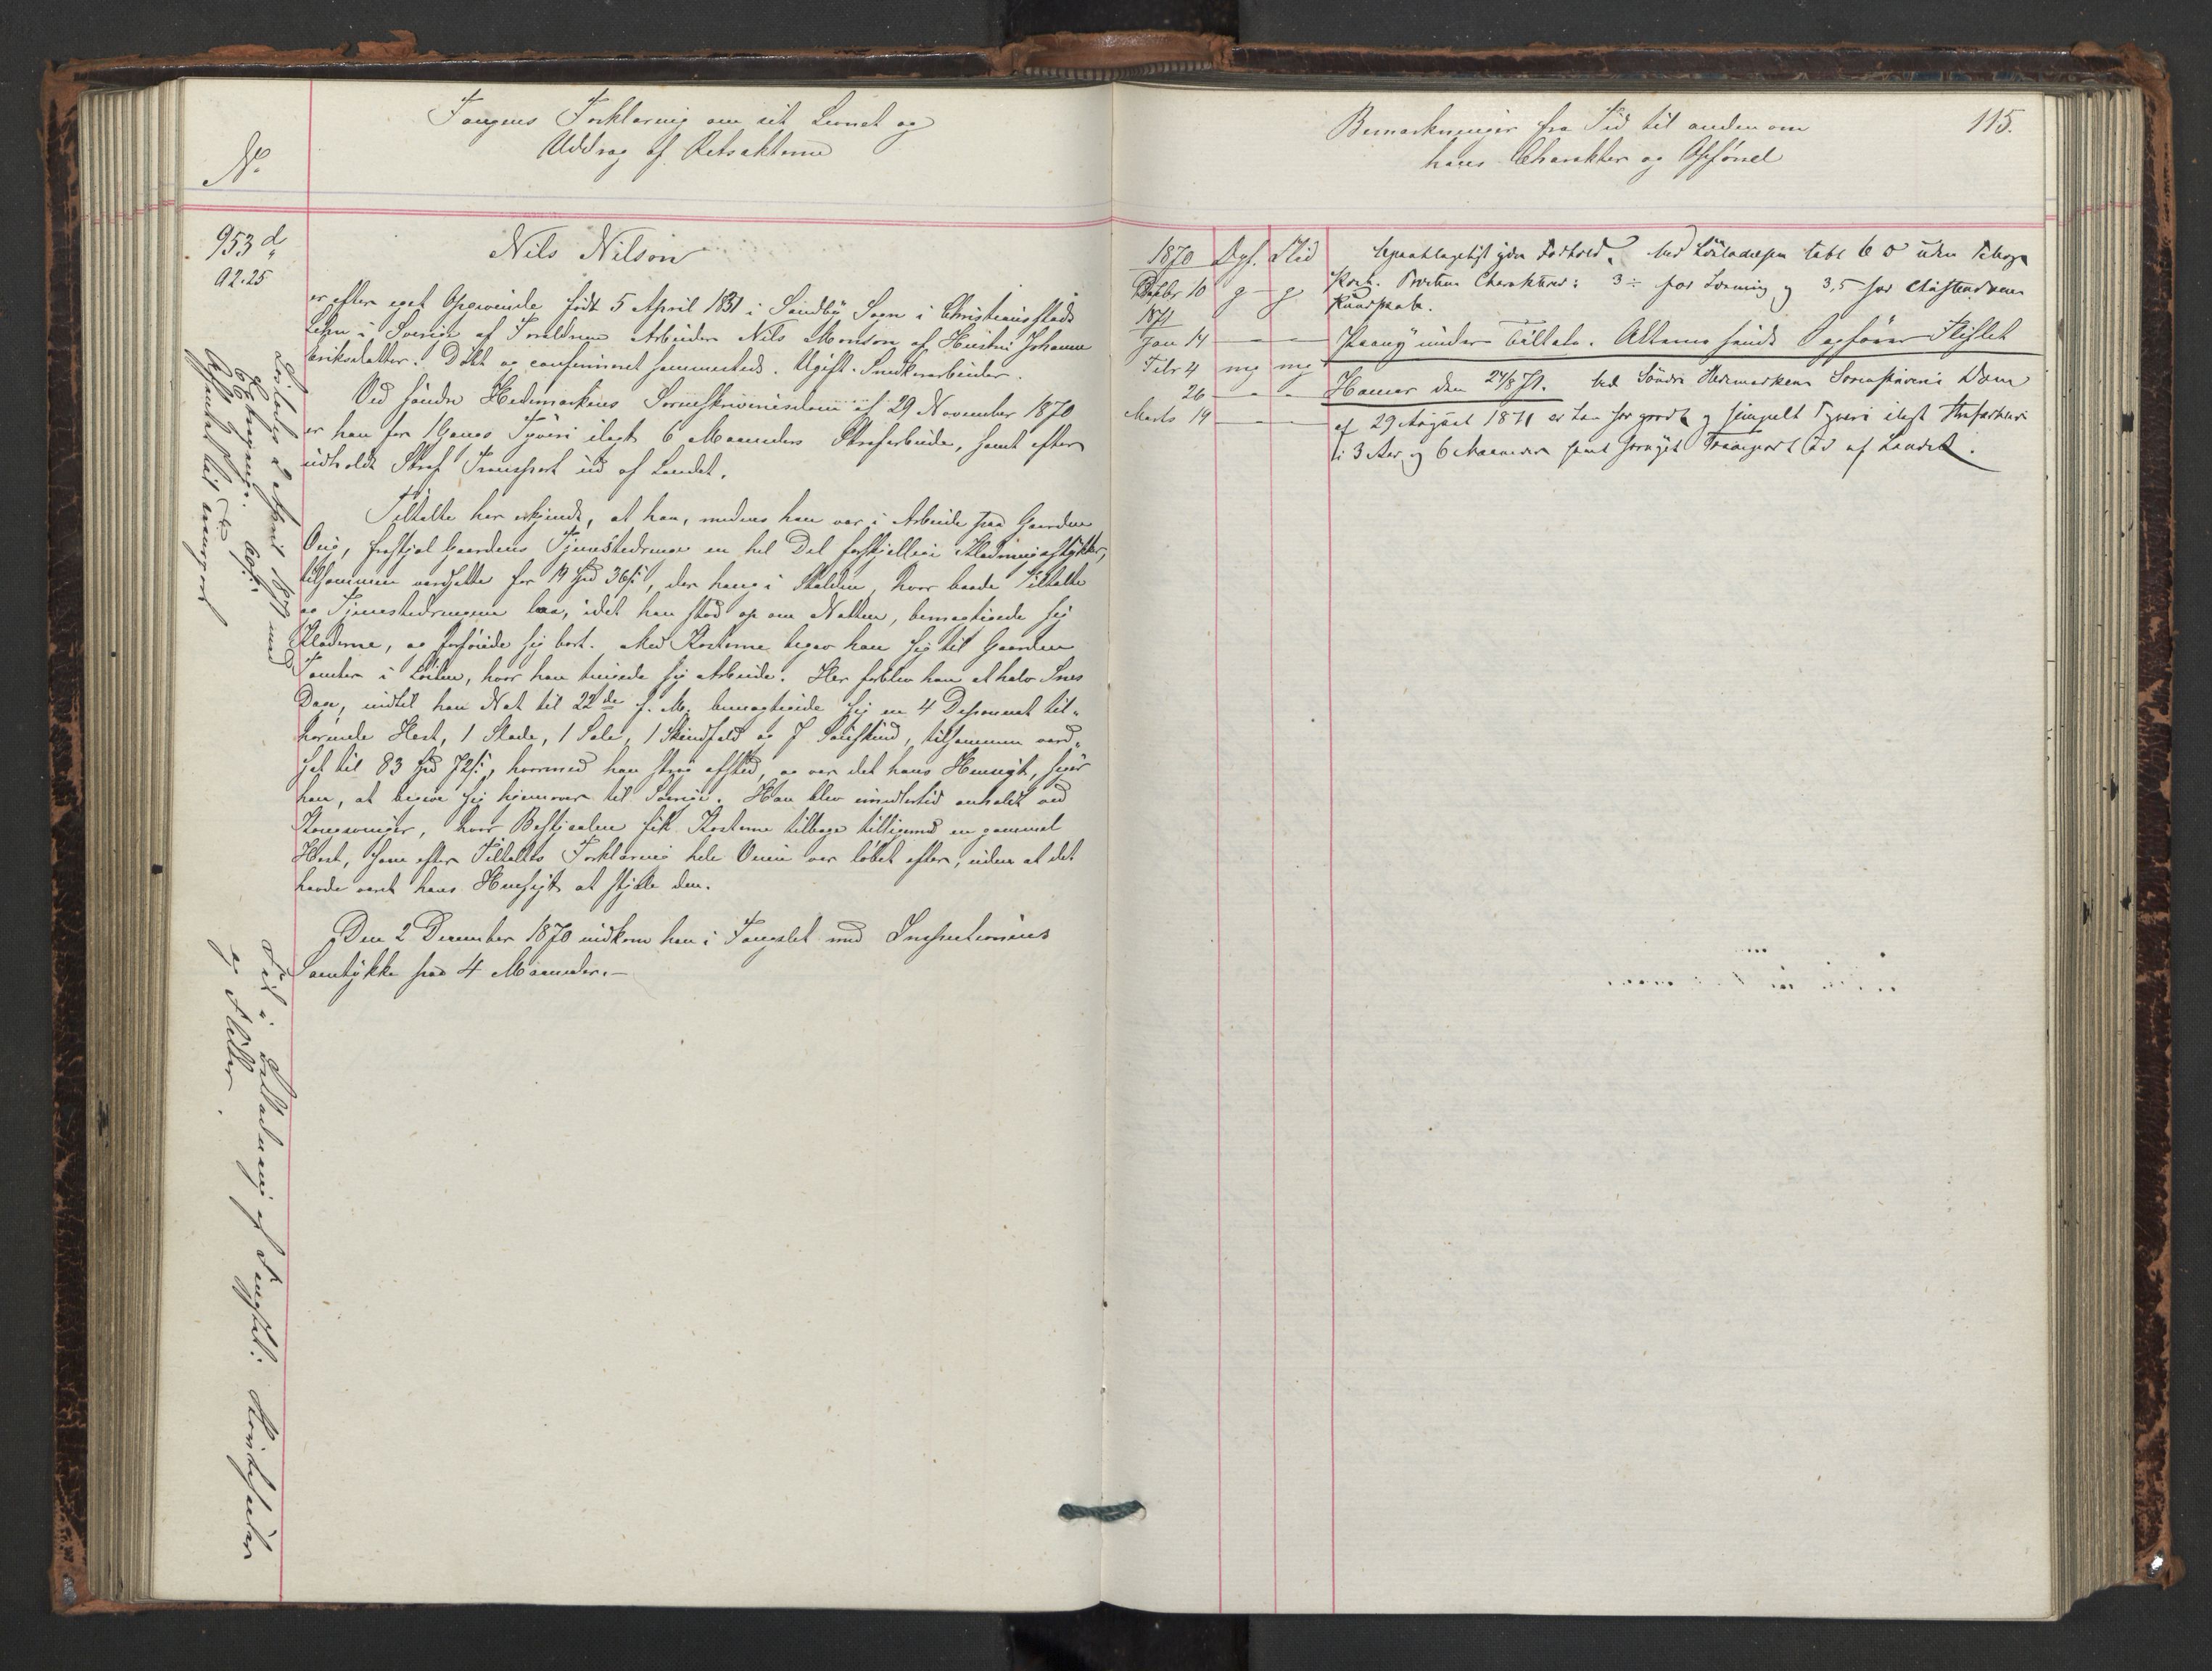 Fangens Forklaring om sit Levnet og
Uddrag af Retsakterne
No.
953 d
92.25
Nils Nilson
er efter eget Opgivende født 5 April 1831 i Sandby Sogn i Christiansstads
Lehn i Sverige af Forældrene Arbeider Nils Monson og Hustru Johanna
Eriksdatter. Døbt og confirmeret sammesteds. Ugift. Snedkerarbeider.
Ved Søndre Hedemarkens Sorenskriveriesdom af 29 November 1870
er han for 1 Gangs Tyveri ilagt 6 Maaneders Strafarbeide, samt efter
udholdt Straf Transport ud af Landet.
Tiltalte har erkjendt, at han, medens han var i Arbeide paa Gaarden
frastjal Gaardens Tjenestedrenge en hel Del forskjellige Klædningsstykker,
tilsammen værdsatte for 14 Spd 36 s, der hang i Stalden, hvor baade Tiltalte
og Tjenestedrengene laa, idet han stod op om Natten, bemægtigede sig
Klæderne, og forføiede sig bort. Med Kosterne begav han sig til Gaarden
i Løiten, hvor han tingede sig Arbeide. Her forblev han et halv Snes
Dage, indtil han Nat til 22de f. M. bemægtigede sig en 4 Deponent til-
hørende Hest, 1 Slæde, 1 Sele, 1 Skindfeld og 7 Saueskind, tilsammen værd-
sat til 83 Spd 72 s, hvormed han strøg afsted, og var det hans Hensigt, siger
han, at begive sig hjemover til Sverige. Han blev imidlertid anholdt ved
Kongsvinger, hvor Bestjaalne fik Kosterne tilbage tilligemed en gammel
Hest, som efter Tiltaltes Forklaring hele Veien var løbet efter, uden at det
havde været hans Hensigt at stjæle den.
Den 2 December 1870 indkom han i Fængslet med Inspectionens
Samtykke paa 4 Maaneder.
Løsladt 2 April 1871 med
Afsendt til
Fik i af
og Klæder.
Bemærkninger fra Tid til anden om
hans Charakter og Opførsel
115.
1870 Opf. Flid
Decbr 10 g g
1871
Jan 14 — —
Febr 4 mg mg
26 — -
Marts 19 — —
Forhold. Ved Løsladelsen uden
Charakter: 3 ÷ for Læsning og 3,5 for Christendoms
Kundskab.
Paany under Tiltale.
Hamar den 24/8 71. Ved Søndre Hedemarkens Sorenskriveries Dom
af 29 August 1871 er han for grovt og simpelt Tyveri ilagt Strafarbeide
i 3 Aar og 6 Maaneder samt fornyet Transport ud af Landet.